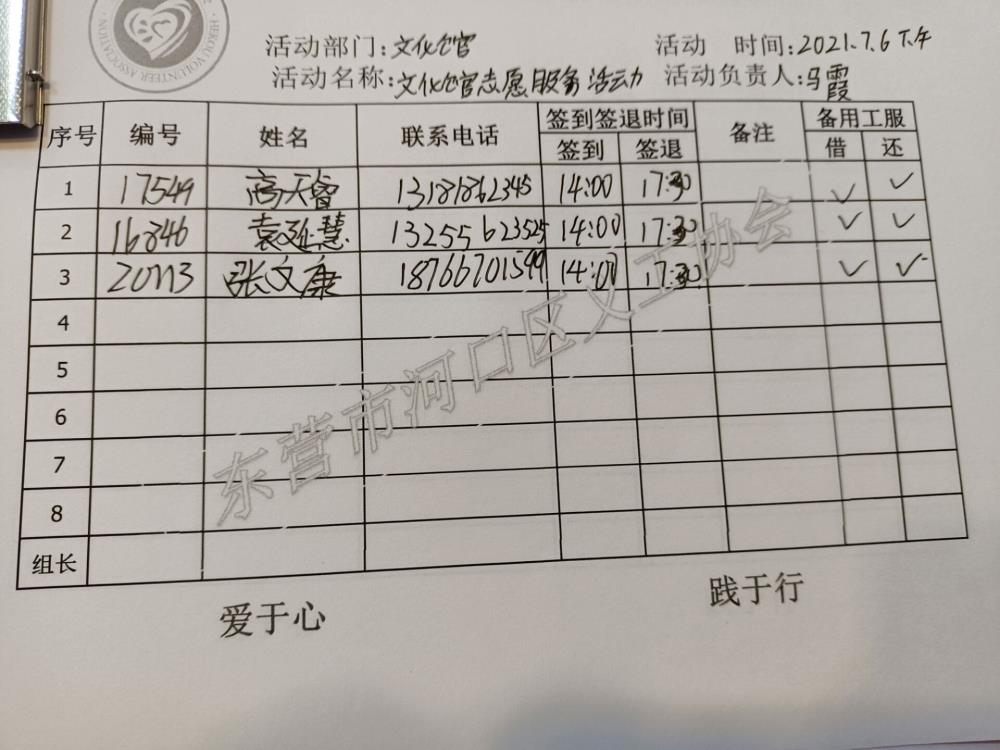 HEKOU VOLUNTEER ASSOCIATION
活动部门:文化馆 活动 时间:2021.7.6下午
活动名称:文化馆志愿服务活动 活动负责人:马霞
序号 编号 姓名 联系电话 签到签退时间 备注 备用工服
签到 签退 借 还
1 17549 高天睿 13181862345 14:00 17:30 ✓ ✓
2 16846 袁延慧 13255623525 14:00 17:30 ✓ ✓
3 张文康 18766701599 14:00 17:30 ✓ ✓
4
5
6
7
8
组长
东营市河口区义工协会
爱于心 践于行